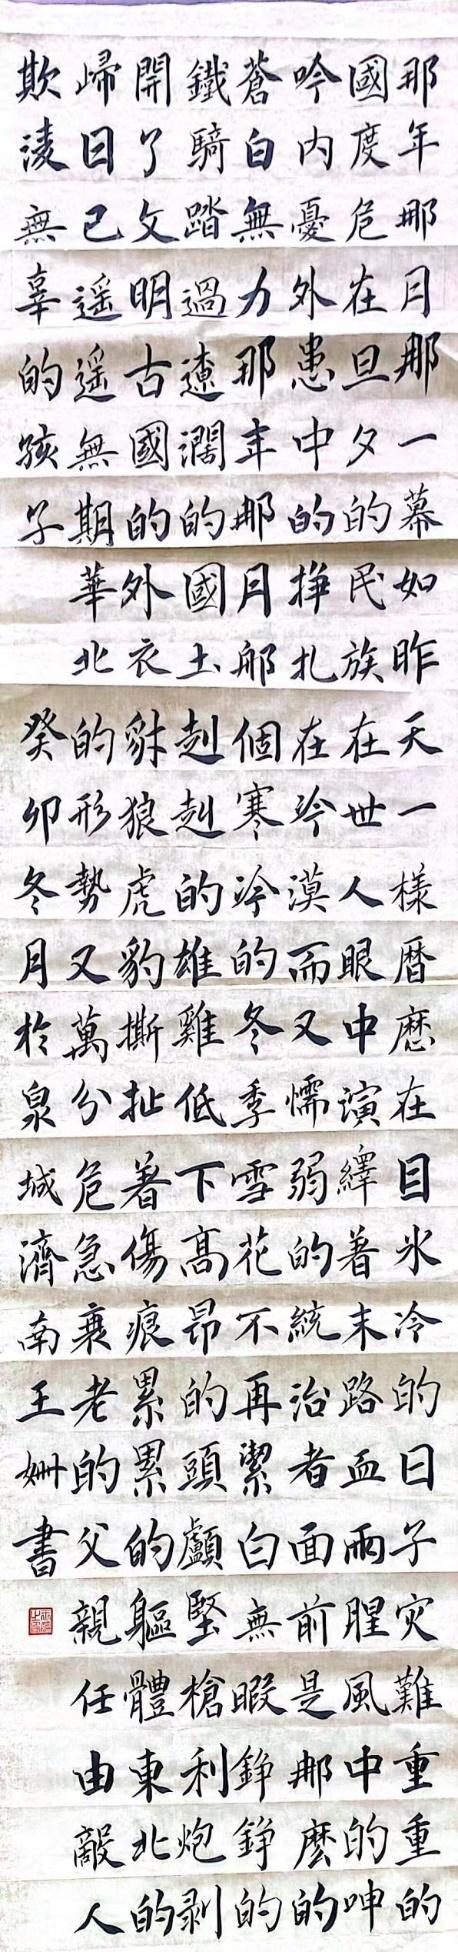 那年那月那一幕如昨天一樣曆歷在目氷冷的日子灾難重重的
國度危在旦夕的民族在世人眼中演繹著末路血雨腥風中的呻
吟内憂外患中的掙扎在冷漠而又懦弱的統治者面前是那麽的
蒼白無力那年那月那個寒冷的冬季雪花不再潔白無暇錚錚的
鐵騎踏過遼濶的國土赳赳的雄雞低下高昂的頭顱堅槍利炮剥
開了文明古國的外衣豺狼虎豹撕扯著傷痕累累的軀體東北的
歸日已遥遥無期華北的形勢又萬分危急衰老的父親任由敵人
欺淩無辜的孩子癸卯冬月於泉城濟南王姍書